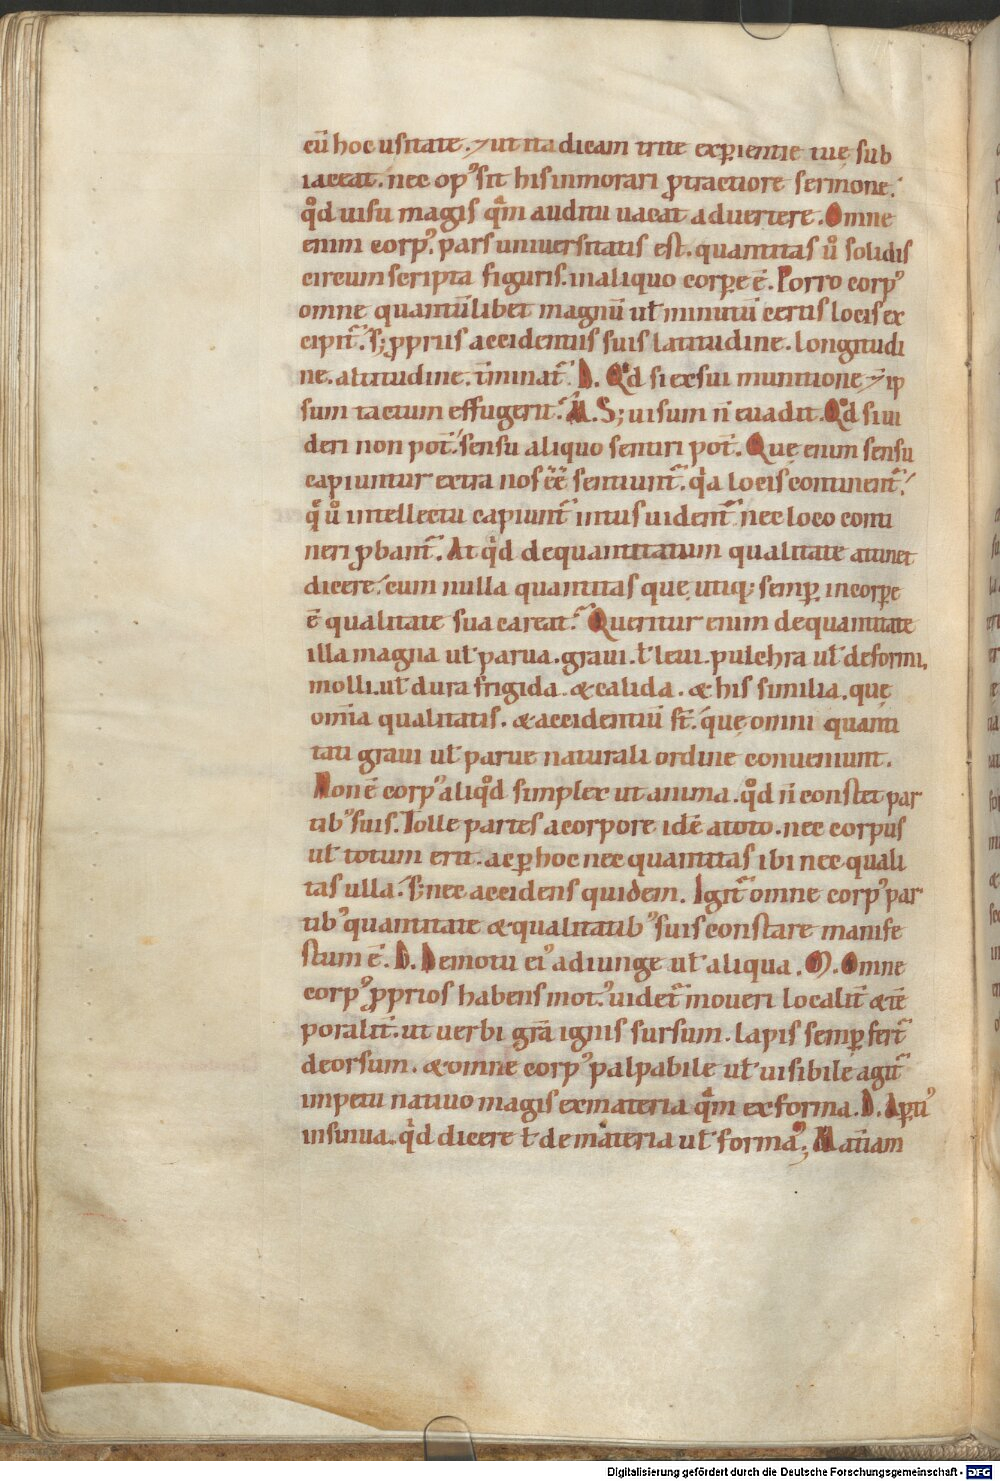 cū hoc usitate. ⁊ ut ita dicam trite experientie tuę sub
iaceat. nec opꝰ sit his inmorari ꝓtractiore sermone.
qͦd uisu magis qͣm auditu uacat aduertere. Omne
enim corpꝰ. pars uniuersitatis est. quantitas ů solidis
circumscripta figuris. in aliquo corpꝑe ē. Porro corpꝰ
omne quantūlibet magnū ut̄ minutū certis locis ex
cipit̄. s; ꝓpriis accidentiis suis latitudine. longitudi
ne. altitudine. t̄minat̄. D. Qͦd si ex sui munitione ⁊ ip
sum tactum effugerit. M. S; uisum n̄ euadit. Qͦd si ui
deri non pot̄. sensu aliquo sentiri pot̄. Quę enim sensu
capiuntur extra nos ēē sentiunt̄. q̇a locis continent̄.
q̄ ů intellectu capiunt̄ intus uident̄ nec loco conti
neri ꝓbant̄. At q̇d de quantitatum qualitate attinet
dicere. cum nulla quantitas quę utiq; semꝑ in corꝑe
ē qualitate sua careat. Queritur enim de quantitate
illa magna ut̄ parua. graui. t̄ leui. pulchra ut̄ deformi,
molli. ut̄ dura frigida. & calida. & his similia. quę
omīa qualitatis. & accidentiū st̄. quę omni quanti
tati graui ut̄ parue naturali ordine conueniunt.
Non ē corpꝰ aliqͦd simplex ut anima. qͦd n̄ constet par
tibꝰ suis. Tolle partes a corpore idē a toto. nec corpus
ut̄ totum erit. ac ꝑ hoc nec quantitas ibi nec quali
tas ulla. s; nec accidens quidem. Igit̄ omne corpꝰ par
tibꝰ quantitate & qualitatibꝰ suis constare manife
stum ē. D. De motu eiꝰ adiunge ut̄ aliqua. M. Omne
corpꝰ ꝓprios habens motꝰ. uidet̄ moueri localit̄ & tē
poralit̄. ut uerbi grā ignis sursum. lapis semꝑ fert̄
deorsum. & omne corpꝰ palpabile ut̄ uisibile agit̄
impetu natiuo magis ex materia qͣm ex forma. D. Aꝑtiꝰ
insinua. q̇d dicere t̄ de materia ut̄ forma; Mat̄iam
Digitalisierung gefördert durch die Deutsche Forschungsgemeinschaft - DFG